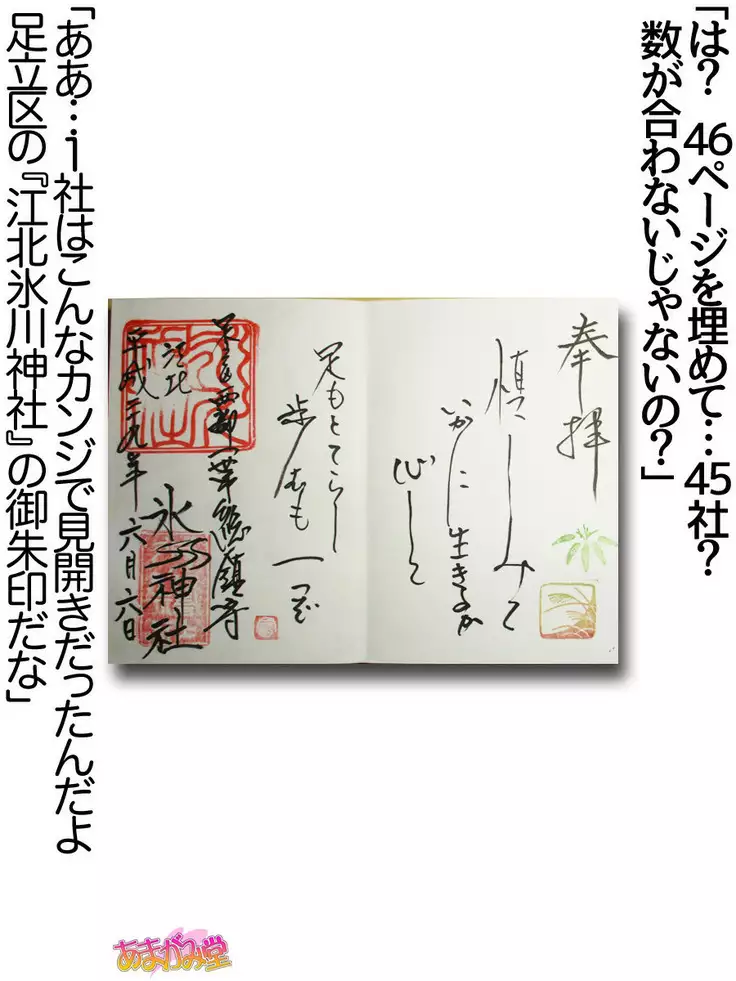 「は? 46ページを埋めて…45社?
数が合わないじゃないの?」
奉拝
慎しみて
いかに生きるか
心して
足もとてらし
歩むも一つぞ
足立西部一帯総鎮守
江北
氷川神社
平成二九年六月六日
「ああ…1社はこんなカンジで見開きだったんだよ
足立区の『江北氷川神社』の御朱印だな」
あまがみ堂